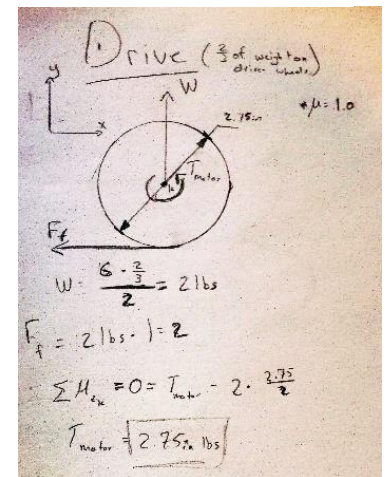 Drive (2/3 of weight on
drive wheels)
y
W
* μ = 1.0
2.75in
x
T motor
F_f
W = (6 · 2/3)/2 = 2 lbs
F_f = 2 lbs · 1 = 2
= 0 = T motor - 2 · 2.75/2
T motor = 2.75 in lbs